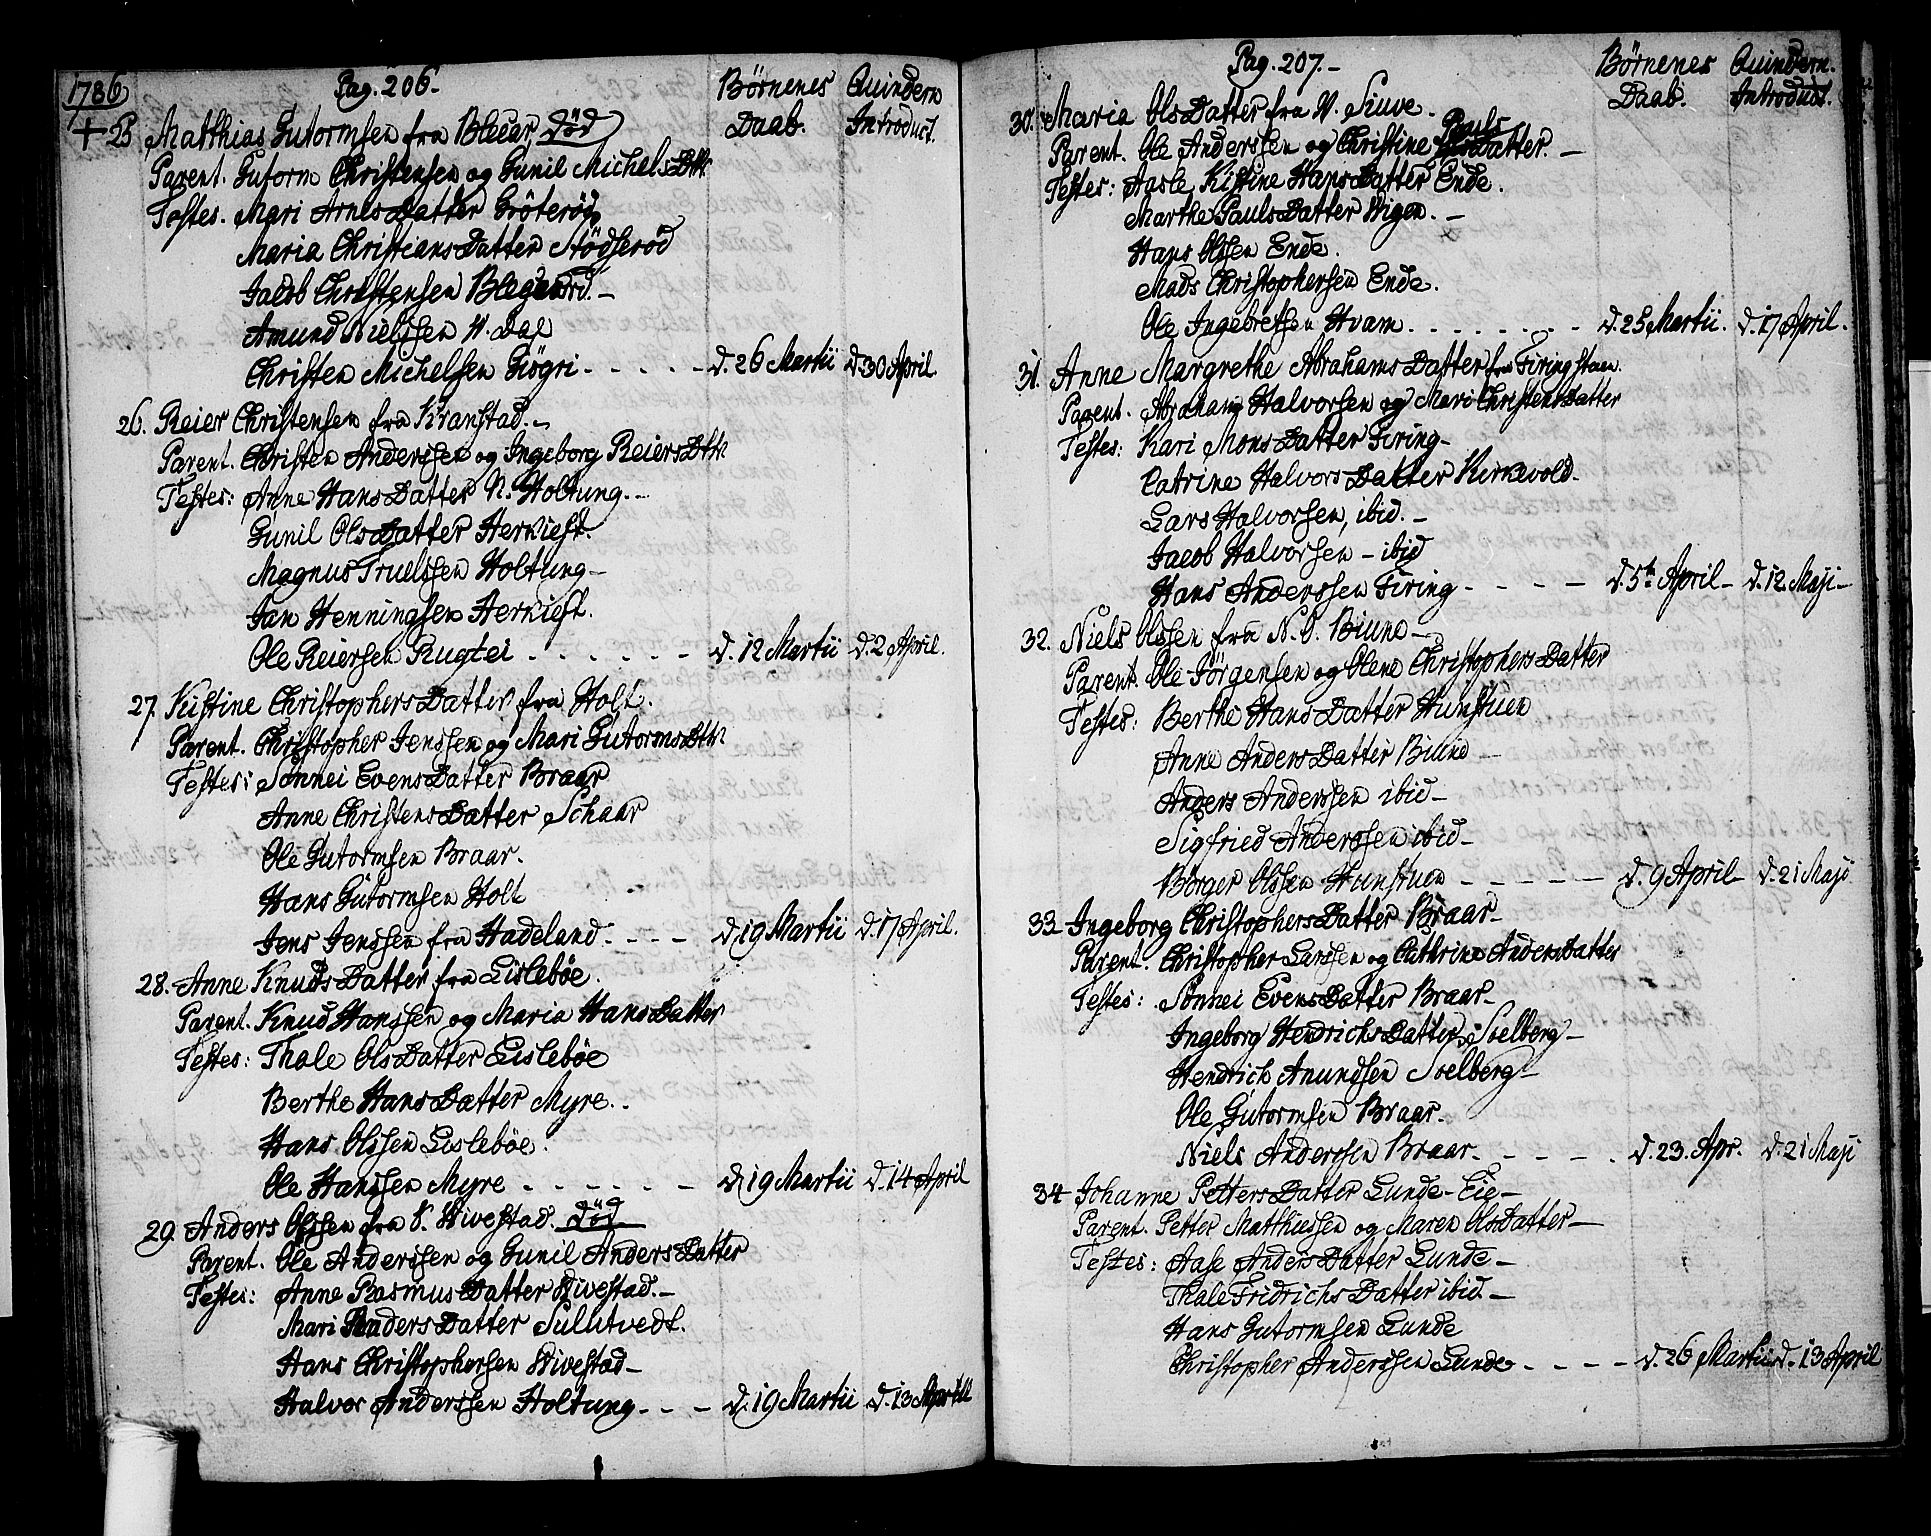 1786
Pag. 206.
Börnenes Daab.
Quindern Introduct.
+ 25 Matthias Gutormsen fra Blecar død
Parent. Gutorm Christensen og Gunil Michels Dtr
Testes. Mari Arnes Datter Gröteröd
Maria Christians Datter Stödseröd
Jacob Christensen Blegeard.-
Amund Nielssen W. Dal
Christen Michelsen Giögri - - - - - d. 26 Martii d. 30 April.
26. Reier Christensen fra Kranstad.-
Parent. Christen Anderssen og Ingeborg Reiers Dtr
Testes: Anne Hans Datter N. Holtung.-
Gunil Ols Datter Herkiest.
Magnus Truelssen Holtung-
Jan Henningsen Herkiest.
Ole Reiersen Rugtei - - - - - - d. 12 Martii d. 2 April.
27. Kistine Christophers Datter fra Holt.
Parent. Christopher Jenssen og Mari Gutorms Dtr
Testes: Sönnei Evens Datter Braar
Anne Christens Datter Schaar
Ole Gutormsen Braar.
Hans Gutormsen Holt
Jens Jenssen fra Hadeland. - - - d. 19 Martii d. 17 April.
28. Anne Knuds Datter fra Lislebøe.
Parent. Knud Hanssen og Maria Hans Datter
Testes: Thale Ols Datter Lislebøe
Berthe Hans Datter Myre..
Hans Olssen Lislebøe.
Ole Hanssen Myre - - - - - - d. 19 Martii d. 14 April
29. Anders Olssen fra S. Wivestad. død
Parent. Ole Anderssen og Gunil Anders Datter
Testes: Anne Rasmus Datter Wivestad.-
Mari Anders Datter Sullutvedt.
Hans Christophersen Wivestad-
Halvor Anderssen Holtung - - - d. 19 Martii d. 13 April
Pag. 207.-
Börnenes Daab.
Quindern. Introduct.
30. Maria Ols Datter fra W. Siuve.
Parent. Ole Anderssen og Christine Pauls Datter.-
Testes: Aasle Kistine Hans Datter Ende.
Marthe Pauls Datter Wigen.-
Hans Olssen Ende.
Mads Christophersen Ende.
Ole Ingebretsen Hvam. - - - - - - - d. 25 Martii. d. 17 April.
31. Anne Margrethe Abrahams Datter fra Firingstuen.
Parent. Abraham Halvorsen og Mari Christens Datter
Testes: Kari Mons Datter Firing-
Catrine Halvors Datter Kirkevold-
Lars Halvorsen, ibid.-
Jacob Halvorsen - ibid
Hans Anderssen Firing - - - - d. 5te April- d. 12 Maji-
32. Niels Olssen fra N. S. Biune-
Parent. Ole Jörgensen og Olene Christophers Datter
Testes: Berthe Hans Datter Hunstuen
Anne Anders Datter Biune-
Anders Anderssen ibid-
Sigfried Anderssen ibid-
Börger Olssen Hunstuen - - - - - d. 9 April- d. 21 Maji
33. Ingeborg Christophers Datter Braar-
Parent. Christopher Larssen og Cathrine Anders Datter
Testes: Sönnei Evens Datter Braar-
Ingeborg Hendrichs Datter Soelberg-
Hendrich Amundsen Soelberg-
Ole Gutormsen Braar.
Niels Anderssen Braar. - - - - . d. 23. Apr. d. 21 Maji
34 Johanne Petters Datter Lunde-Eie-
Parent. Petter Matthiessen og Maren Ols Datter-
Testes: Aase Anders Datter Lunde-
Thale Fridrichs Datter ibid.-
Hans Gutormsen Lunde
Christopher Anderssen Lunde - - - - d. 26 Martii d. 13 April